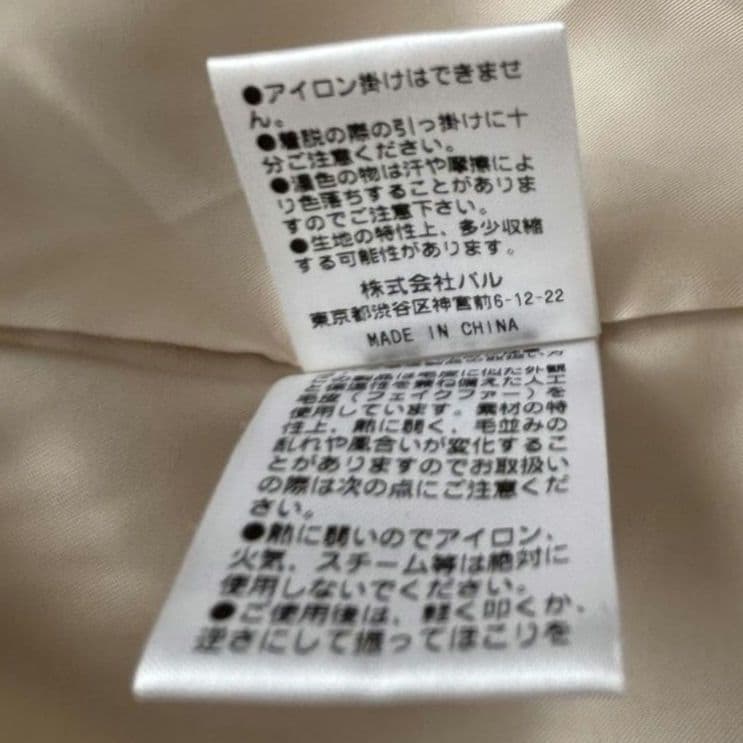 ●アイロン掛けはできませ
ん。
●着脱の際の引っ掛けに十
分ご注意ください。
●濃色の物は汗や摩擦によ
り色落ちすることがありま
すのでご注意下さい。
●生地の特性上、多少収縮
する可能性があります。
株式会社パル
東京都渋谷区神宮前6-12-22
MADE IN CHINA
の製品は毛皮に似た外観
と保温性を兼ね備えた人工
毛皮(フェイクファー)を
使用しています。素材の特
性上、熱に弱く、毛並みの
乱れや風合いが変化するこ
とがありますのでお取扱い
の際は次の点にご注意くだ
さい。
●熱に弱いのでアイロン、
火気、スチーム等は絶対に
使用しないでください。
●ご使用後は、軽く叩くか、
逆さにして振ってほこりを